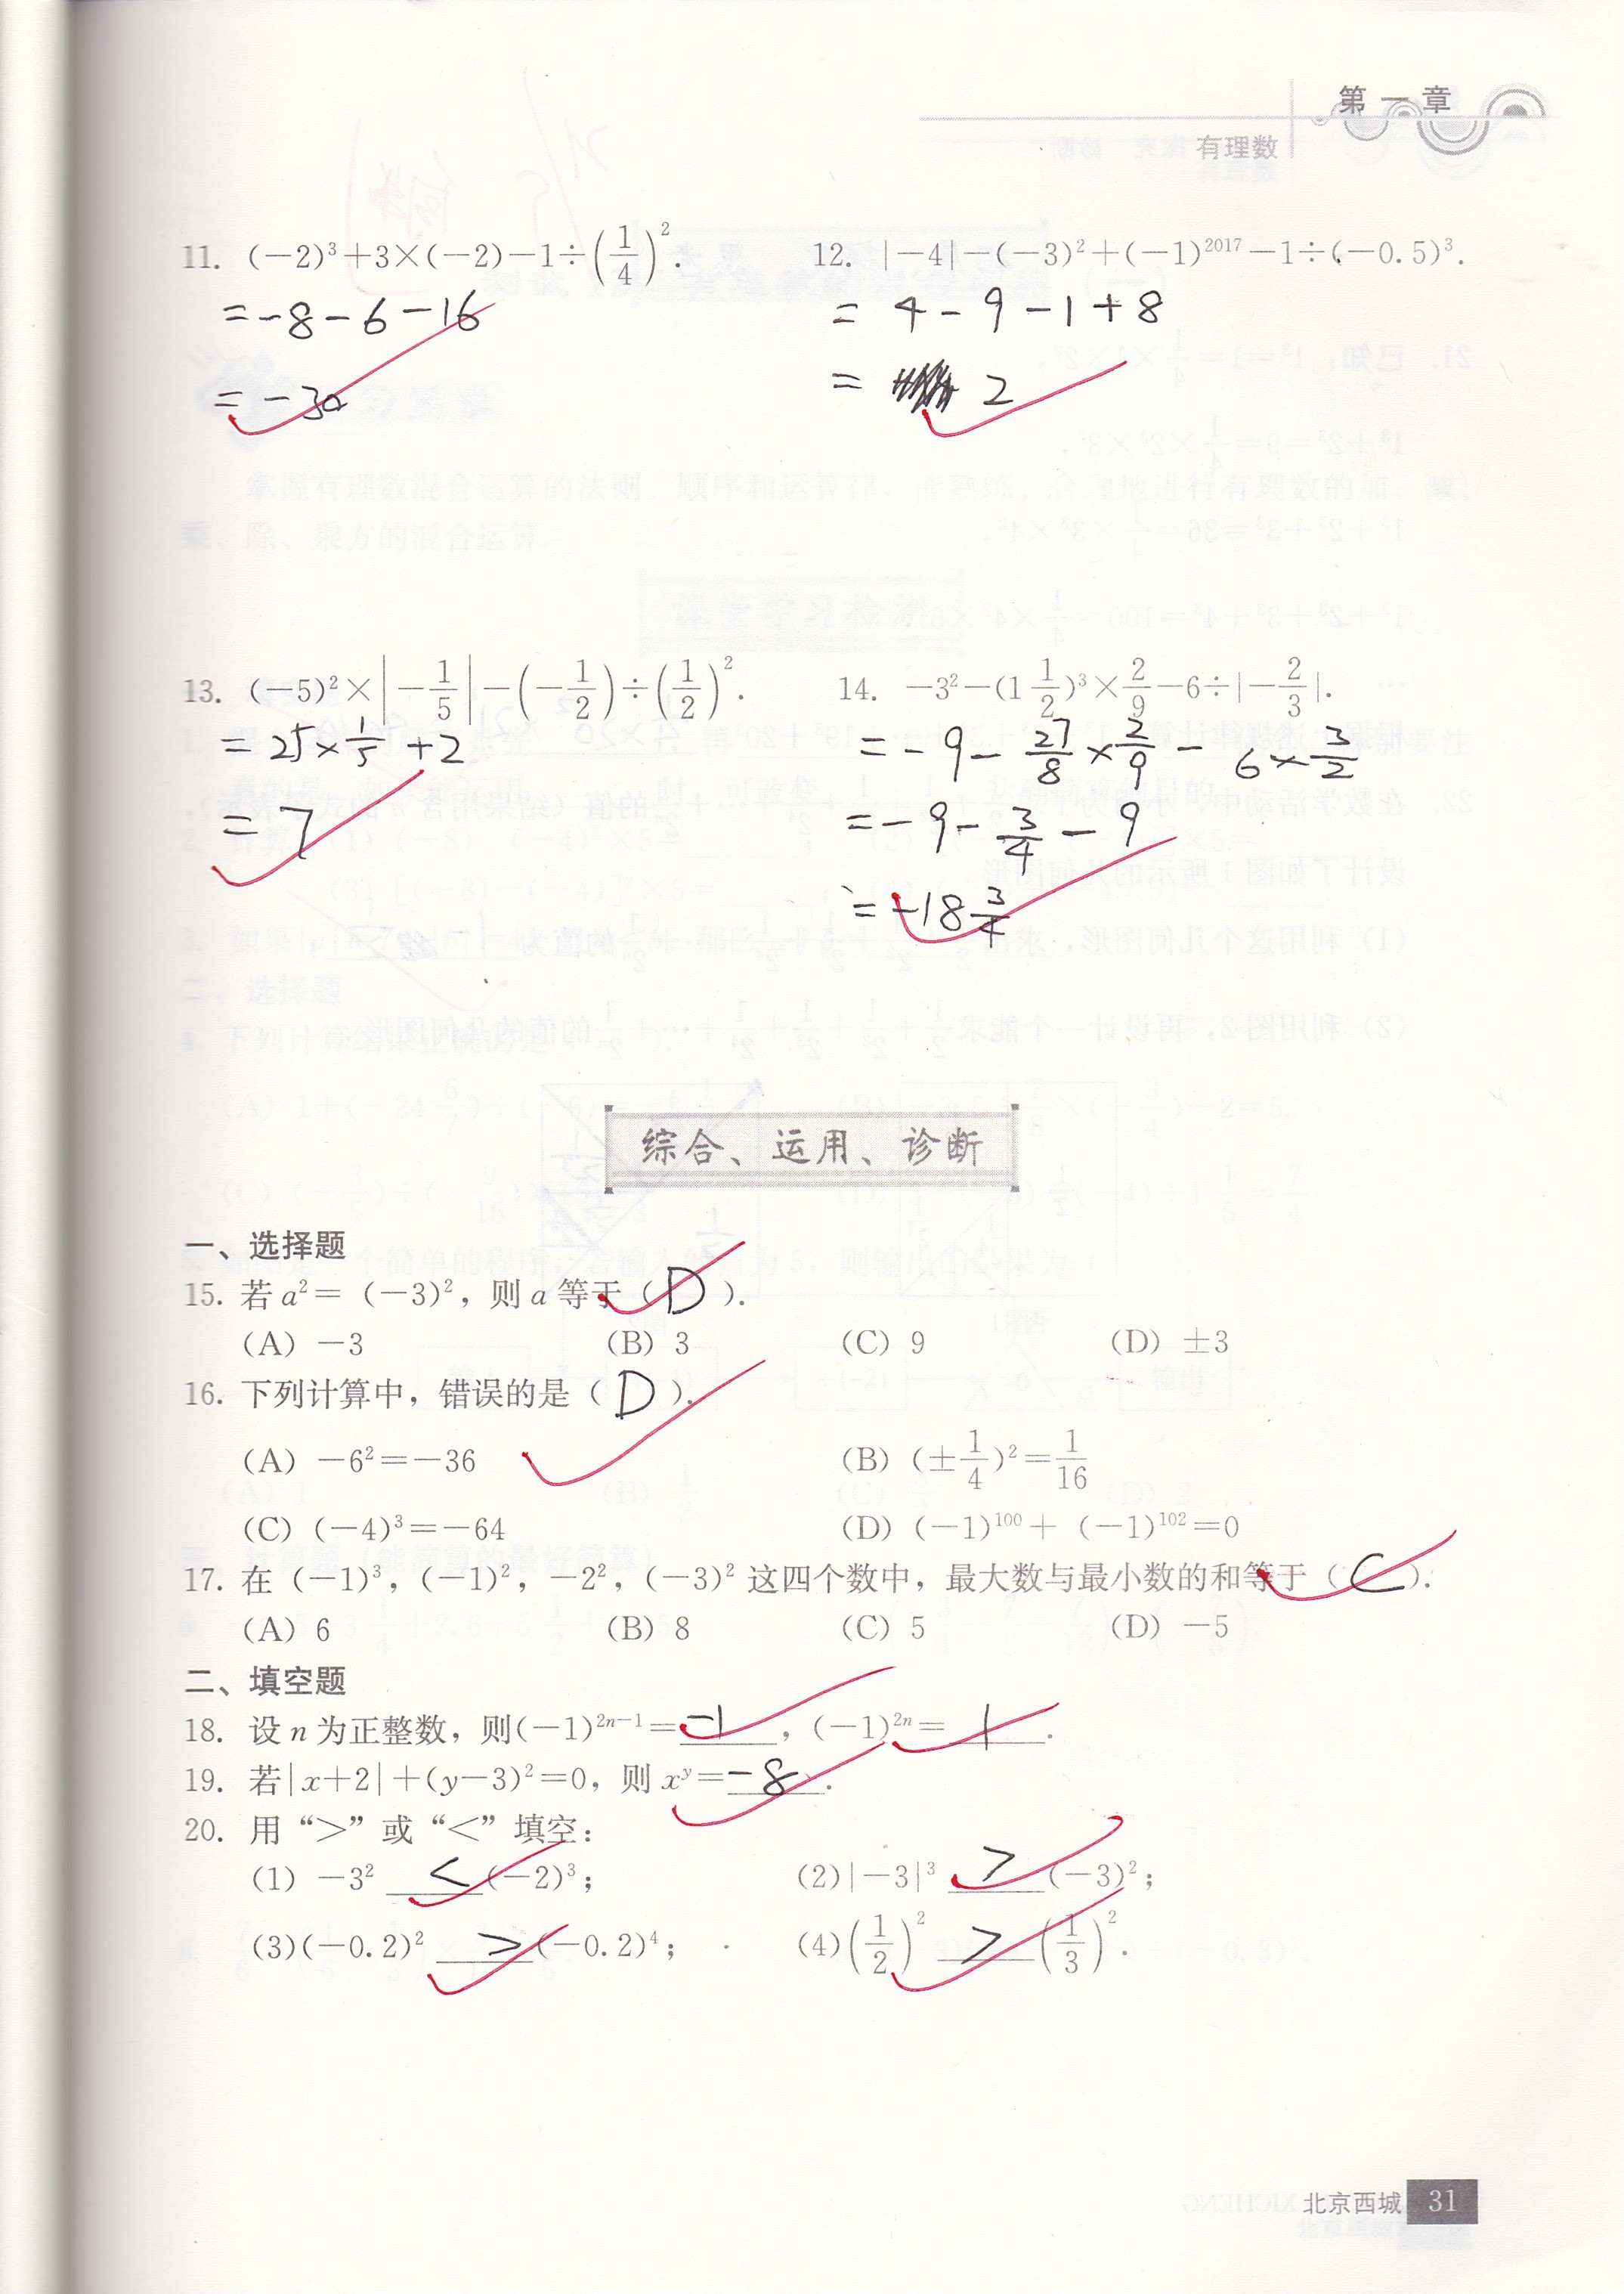 第一章
有理数
11. (−2)³+3×(−2)−1÷(1/4)². 12. |−4|−(−3)²+(−1)²⁰¹⁷−1÷(−0.5)³.
=−8−6−16 = 4−9−1+8
=−30 = 2
13. (−5)²×|−1/5|−(−1/2)÷(1/2)². 14. −3²−(1 1/2)³×2/9−6÷|−2/3|.
=25×1/5+2 =−9−27/8×2/9−6×3/2
=7 =−9−3/4−9
=−18 3/4
综合、运用、诊断
一、选择题
15. 若a²=(−3)²，则a等于（D）.
(A) −3 (B) 3 (C) 9 (D) ±3
16. 下列计算中，错误的是（D）.
(A) −6²=−36 (B) (±1/4)²=1/16
(C) (−4)³=−64 (D) (−1)¹⁰⁰+(−1)¹⁰²=0
17. 在(−1)³，(−1)²，−2²，(−3)²这四个数中，最大数与最小数的和等于（C）.
(A) 6 (B) 8 (C) 5 (D) −5
二、填空题
18. 设n为正整数，则(−1)²ⁿ⁻¹=−1，(−1)²ⁿ=1.
19. 若|x+2|+(y−3)²=0，则xʸ=−8.
20. 用“>”或“<”填空：
(1) −3² < (−2)³； (2) |−3|³ > (−3)²；
(3) (−0.2)² > (−0.2)⁴； (4) (1/2)² > (1/3)².
北京西城 31